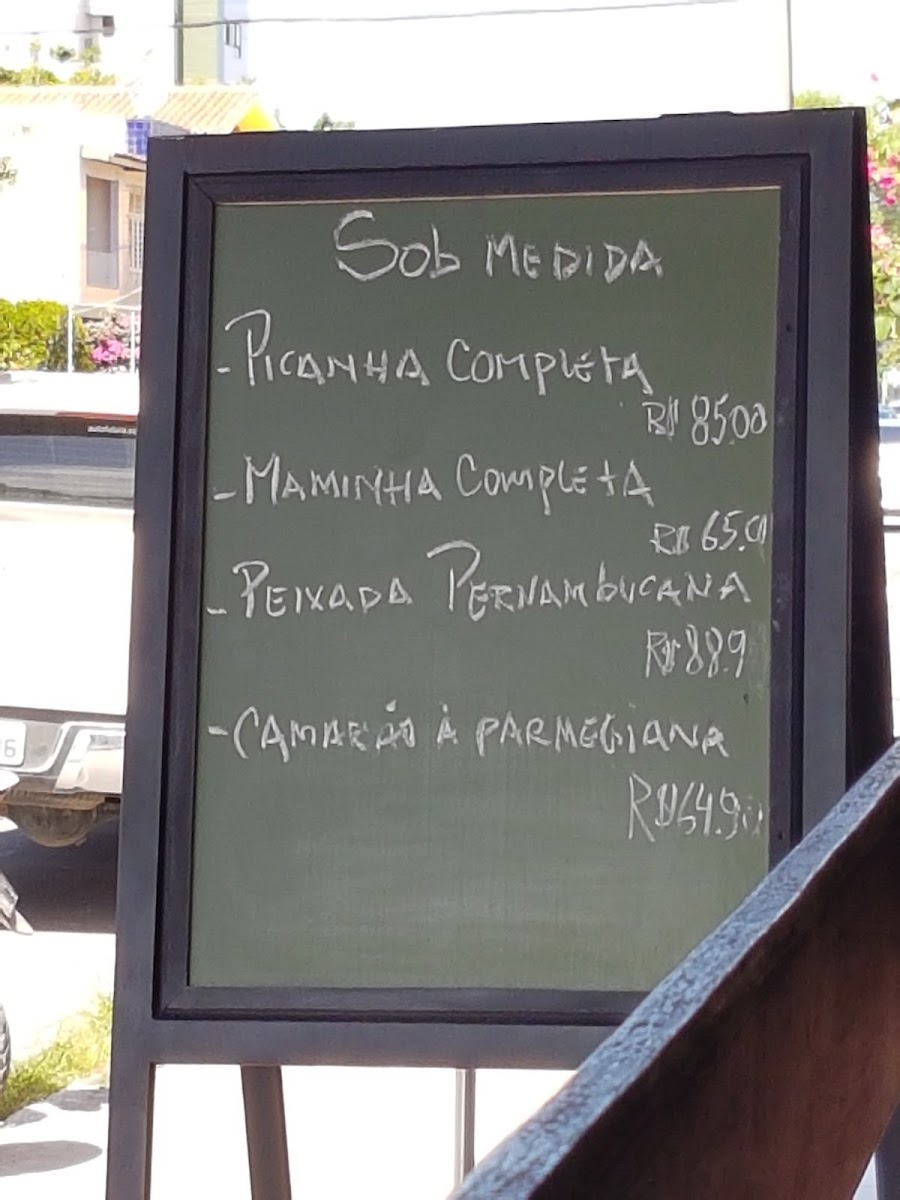 Sob MEDIDA
-PICANHA COMPLETA
R$ 85.00
-MAMINHA COMPLETA
R$ 65.0
-PEIXADA PERNAMBUCANA
R$ 88.9
-CAMARÃO À PARMEGIANA
R$ 64.90